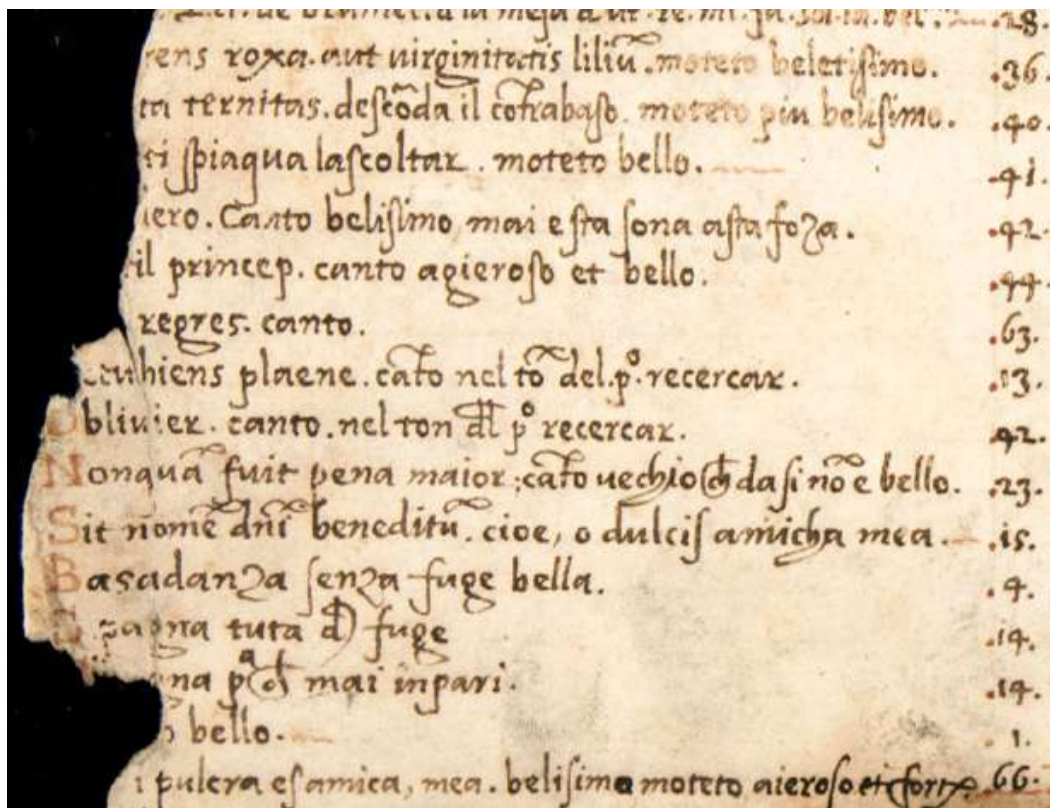 de a la mesa a ut. re. mi. fa. sol. la. .28.
rens roxa. aut uirginitatis liliũ. moteto beletisimo. .36.
ta ternitas. descõda il cõtrabaso. moteto piu belisimo. .40.
ti spiaqua lascoltar. moteto bello. .41.
iero. Canto belisimo mai e sta sona asta foza. .42.
il princep. canto agieroso et bello. .44.
regres. canto. .63.
hiens plaene. cãto nel tõ del. pº. recercar. .13.
Oblivier. canto. nel ton dl pº recercar. .42.
Nonquã fuit pena maior; cãto uechio ch da si nõ e bello. .23.
Sit nomẽ dñi beneditũ. cioe, o dulcis amicha mea. .15.
Basadanza senza fuge bella. .4.
Spagna tuta d fuge .14.
gna mai inpari. .14.
bello. .1.
i pulcra es amica, mea. belisimo moteto aieroso et forte. 66.